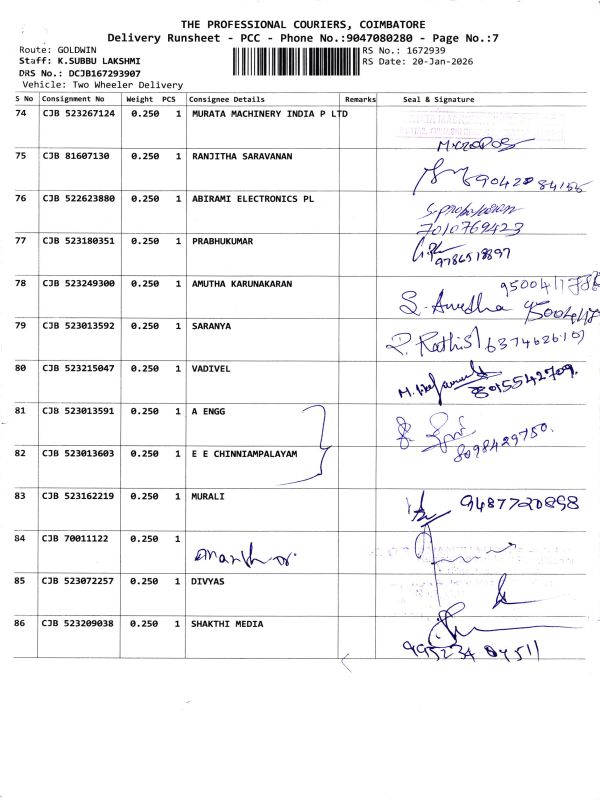 THE PROFESSIONAL COURIERS, COIMBATORE
Delivery Runsheet - PCC - Phone No.:9047080280 - Page No.:7
Route: GOLDWIN
RS No.: 1672939
Staff: K.SUBBU LAKSHMI
RS Date: 20-Jan-2026
DRS No.: DCJB167293907
Vehicle: Two Wheeler Delivery
S No Consignment No Weight PCS Consignee Details Remarks Seal & Signature
74 CJB 523267124 0.250 1 MURATA MACHINERY INDIA P LTD
75 CJB 81607130 0.250 1 RANJITHA SARAVANAN
76 CJB 522623880 0.250 1 ABIRAMI ELECTRONICS PL
7010769423
77 CJB 523180351 0.250 1 PRABHUKUMAR
78 CJB 523249300 0.250 1 AMUTHA KARUNAKARAN
79 CJB 523013592 0.250 1 SARANYA
80 CJB 523215047 0.250 1 VADIVEL
8015542709.
81 CJB 523013591 0.250 1 A ENGG
8098429750.
82 CJB 523013603 0.250 1 E E CHINNIAMPALAYAM
83 CJB 523162219 0.250 1 MURALI
9487720898
84 CJB 70011122 0.250 1
85 CJB 523072257 0.250 1 DIVYAS
86 CJB 523209038 0.250 1 SHAKTHI MEDIA